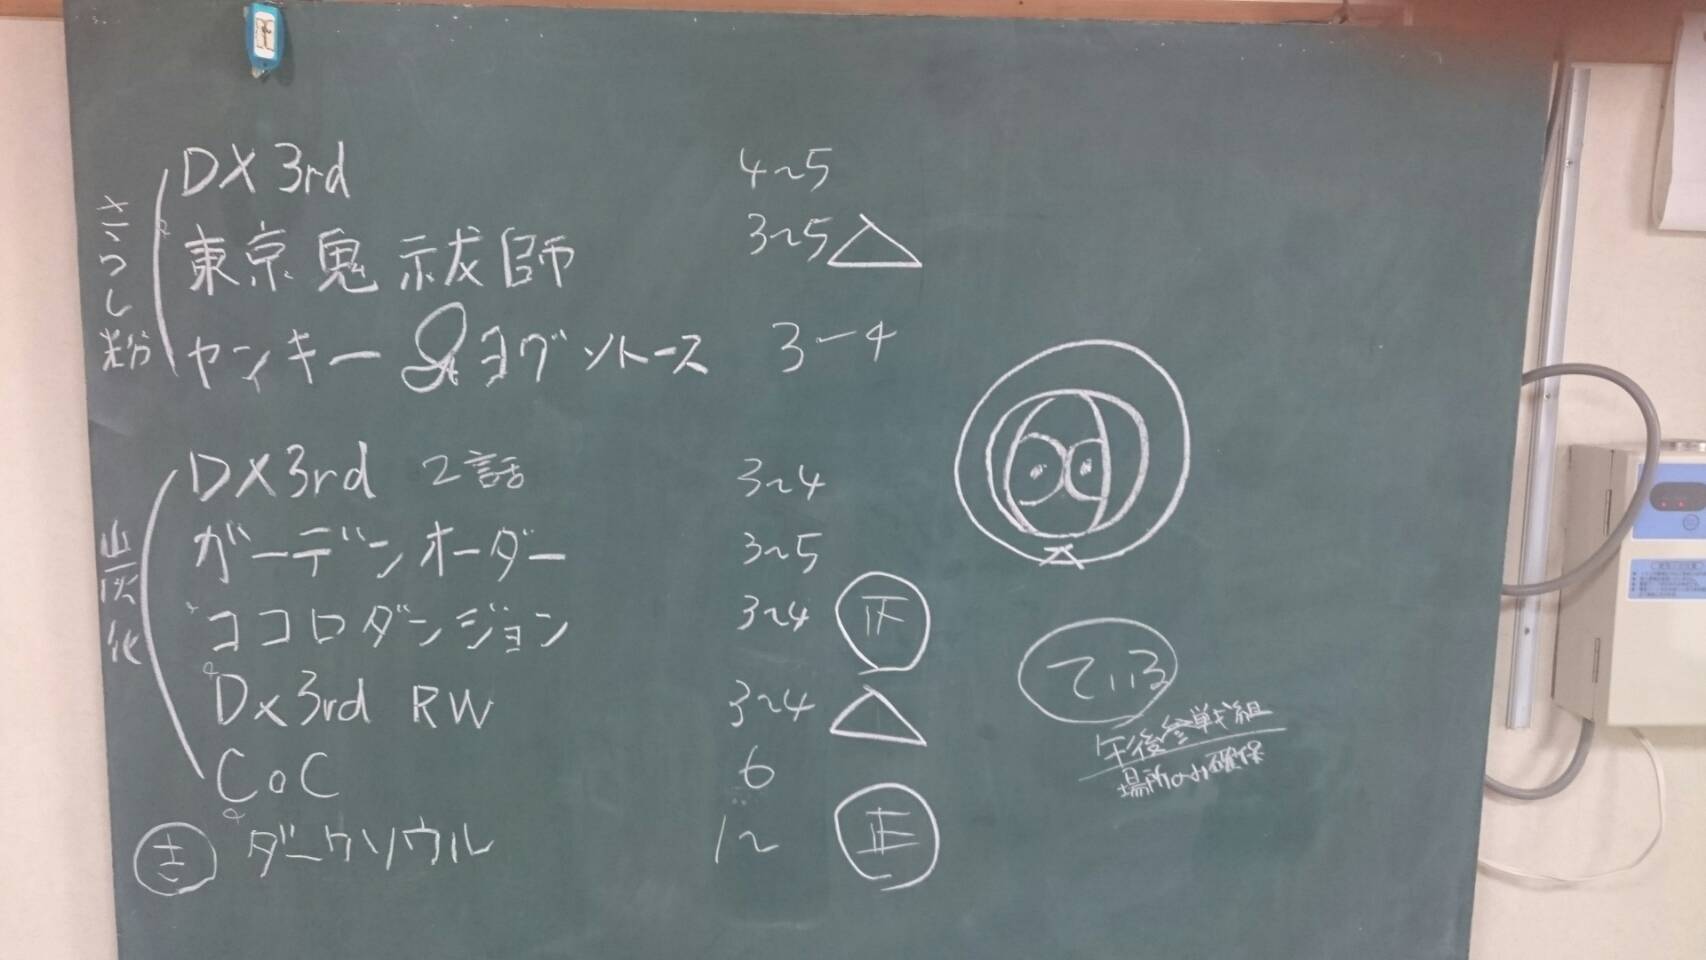 DX 3rd 4~5
東京鬼祓師 3~5
ヤンキー&ヨグソトース 3ー4
DX3rd 2話 3~4
ガーデンオーダー 3~5
ココロダンジョン 3~4 正
Dx3rd RW 3~4
CoC 6
ダークソウル 1~ 正
ている
午後参戦組
場所のみ確保